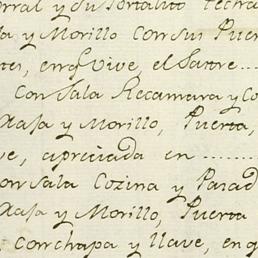 orral y su Portalito techa
a y Morillo con sus Puer
tes, en q̃ Vive, el Sastre....
Con Sala Recamara y Co
Axafa y Morillo, Puerta,
ve, apreciada en ........
on Sala Cozina y Parad
Axafa y Morillo, Puerta
, con chapa y llave, en q